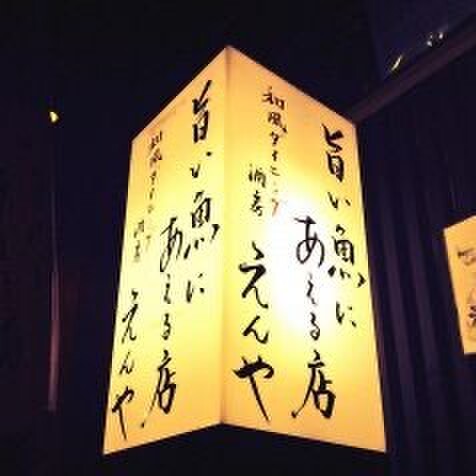 旨い魚に
あえる店
和風ダイニング
酒房
えんや
旨い魚に
あえる店
和風ダイニング
酒房
えんや